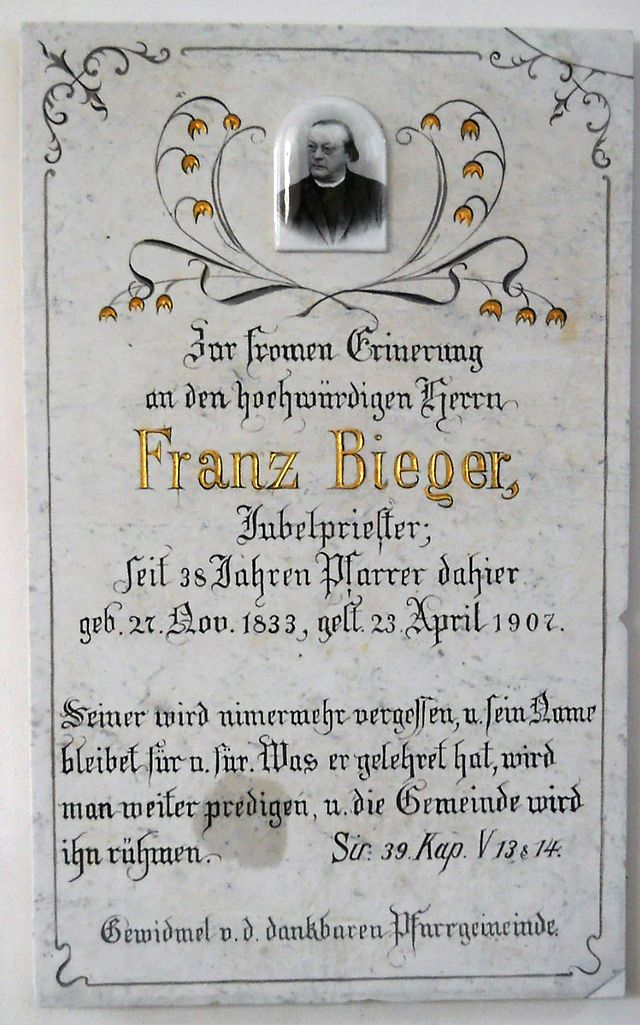 Zur fromen Erinerung
an den hochwürdigen Herrn
Franz Bieger,
Jubelpriester;
seit 38 Jahren Pfarrer dahier
geb. 27. Nov. 1833, gest. 23. April 1907.
Seiner wird nimermehr vergessen, u. sein Name
bleibet für u. für. Was er gelehret hat, wird
man weiter predigen, u. die Gemeinde wird
ihn rühmen. Sir. 39. Kap. V 13 & 14.
Gewidmet v. d. dankbaren Pfarrgemeinde.